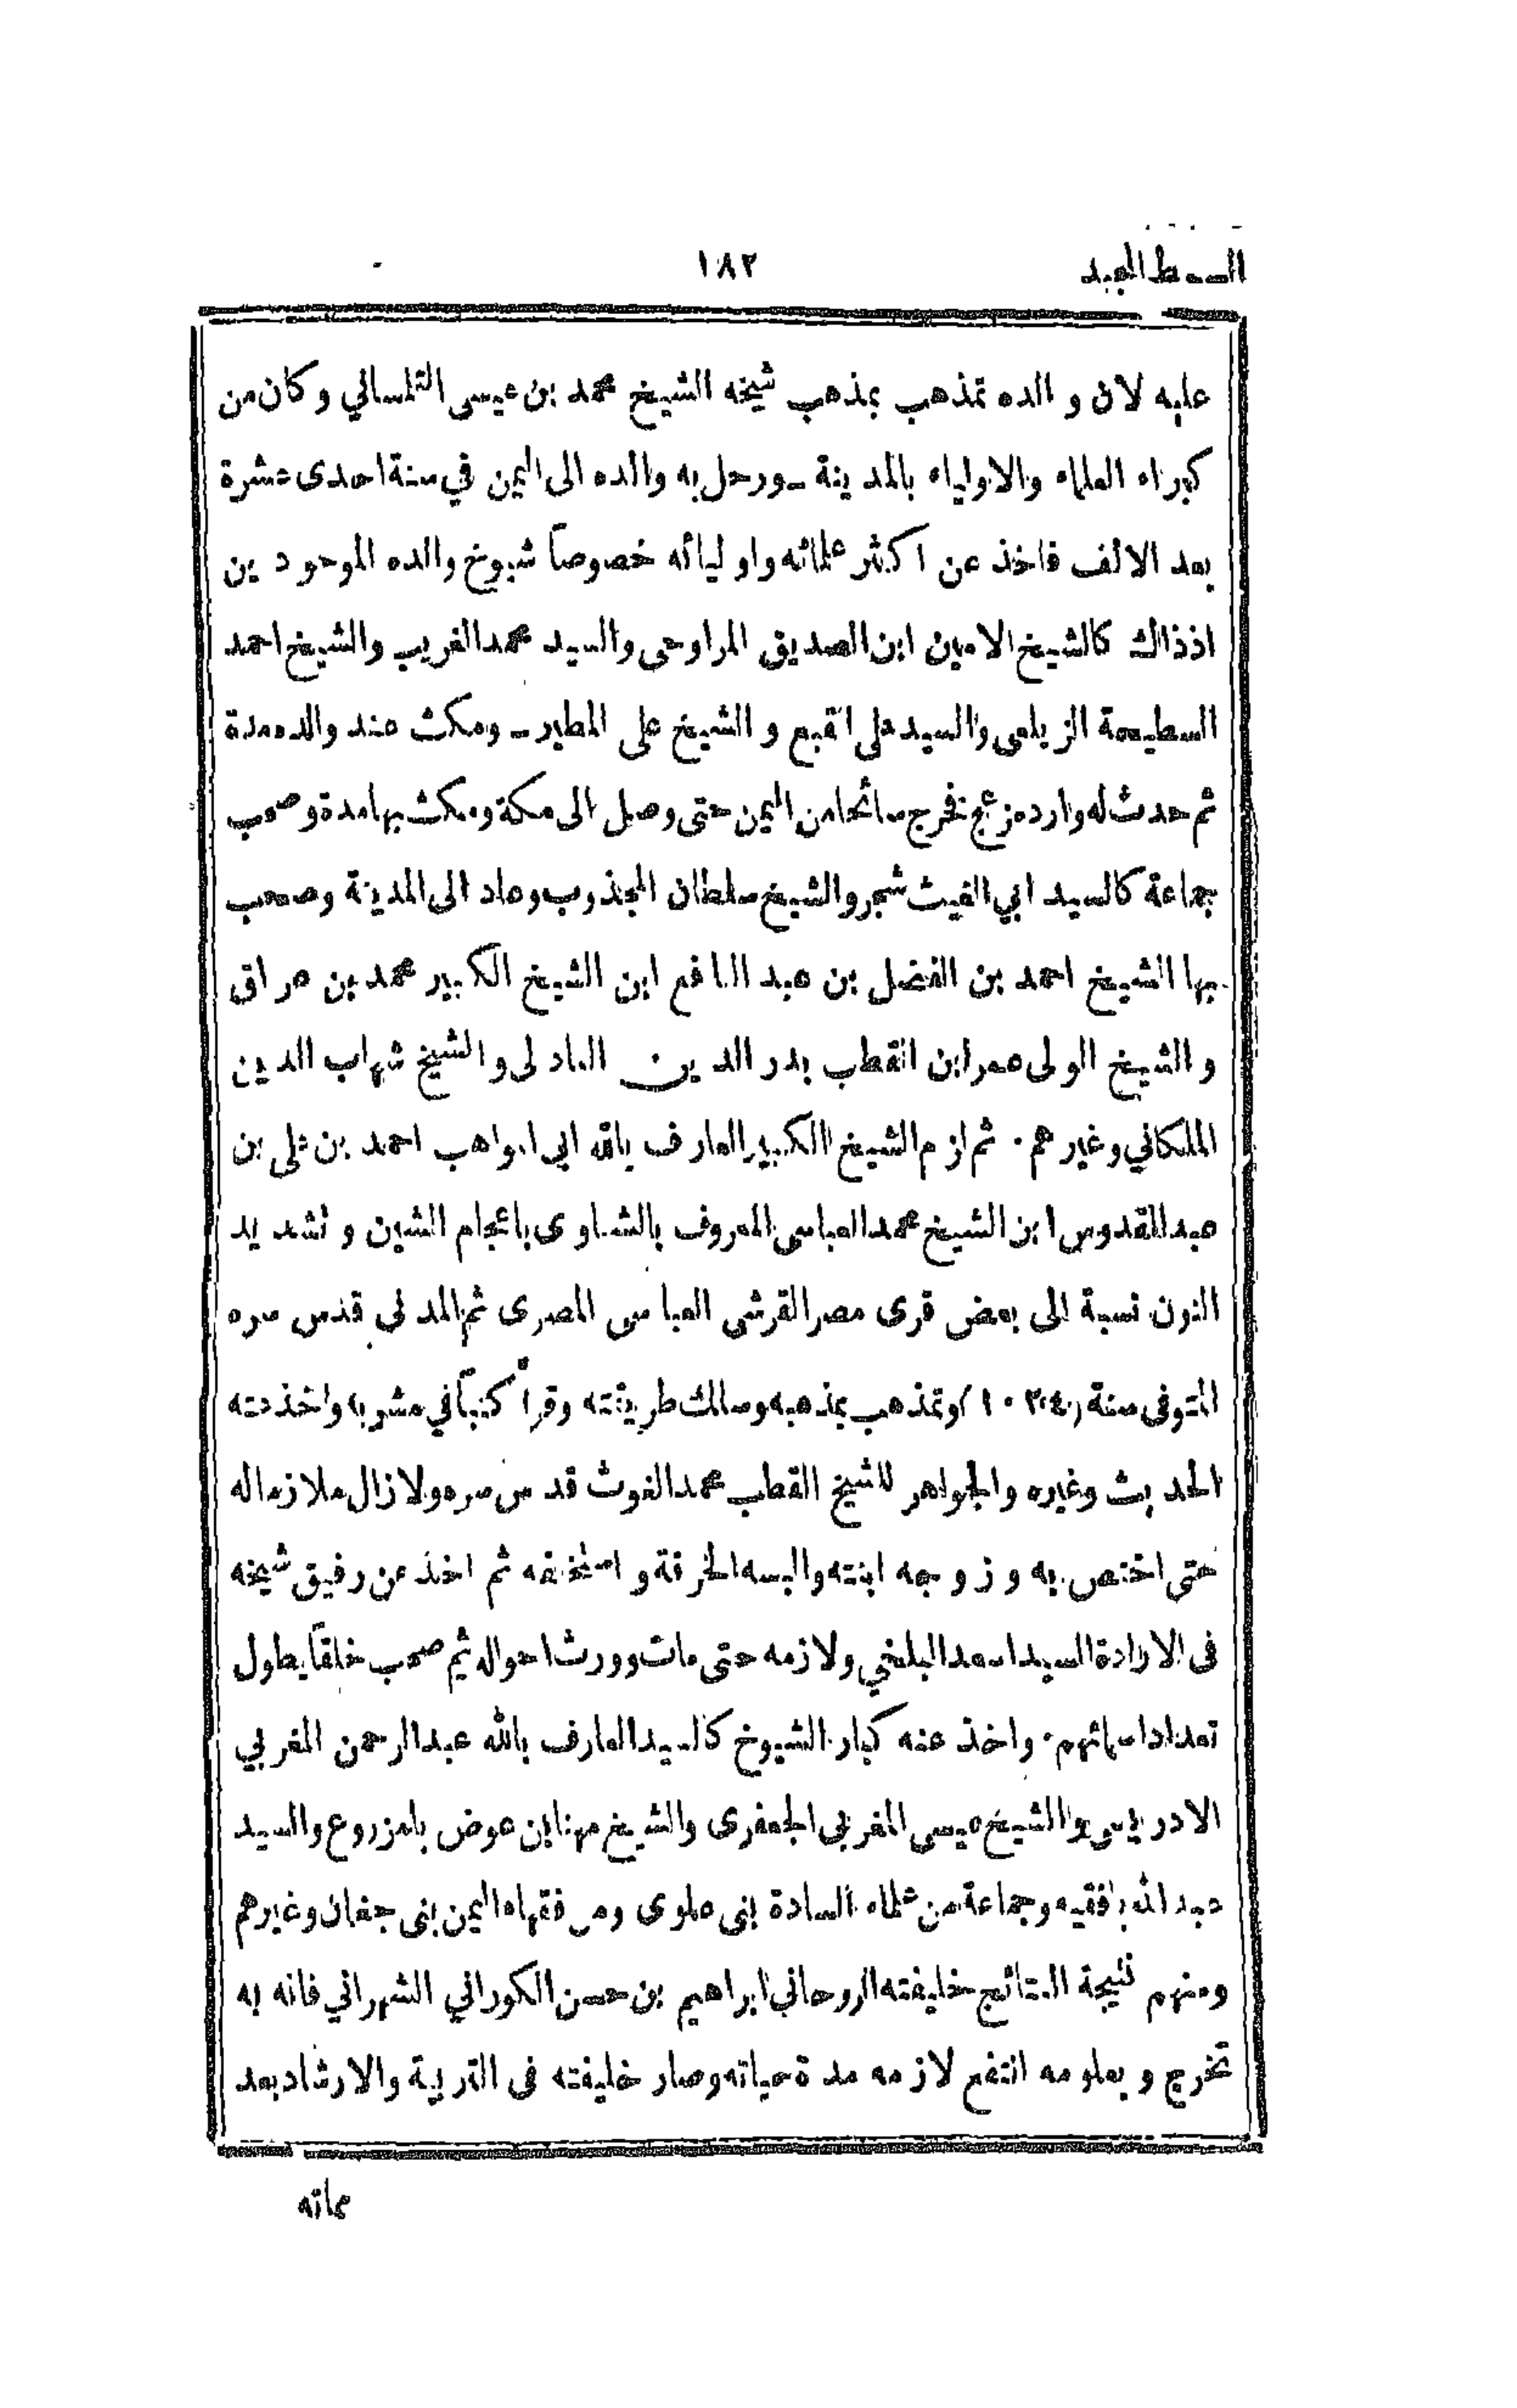 السمط المجيد ١٨٢
عليه لان والده تمذهب بمذهب شيخه الشيخ محمد بن عيسى التلمساني وكان من
كبراء العلماء والاولياء بالمدينة ـ ورحل به والده الى اليمن في سنة احدى عشرة
بعد الالف فاخذ عن اكثر علمائه واوليائه خصوصاً شيوخ والده الموجودين
اذذاك كالشيخ الامين ابن الصديق المراوحى والسيد محمد الغريب والشيخ احمد
السطيحة الزيلعى والسيد على القبع و الشيخ على المطير ـ ومكث عند والده مدة
ثم حدث له وارد مزعج فخرج سائحا من اليمن حتى وصل الى مكة ومكث بها مدة وصحب
جماعة كالسيد ابي الغيث شجر والشيخ سلطان المجذوب وعاد الى المدينة وصحب
بها الشيخ احمد بن الفضل بن عبد النافع ابن الشيخ الكبير محمد بن عراق
و الشيخ الولى عمر ابن القطب بدر الدين العادلى والشيخ شهاب الدين
الملكاني وغيرهم ۰ ثم لزم الشيخ الكبير العارف بالله ابي المواهب احمد بن على بن
عبد القدوس ابن الشيخ محمد العباسى المعروف بالشناوى باعجام الشين و تشديد
النون نسبة الى بعض قرى مصر القرشى العباسى المصرى ثم المدني قدس سره
المتوفى سنة (١٠٢٤) وتمذهب بمذهبه وسلك طريقته وقرأ كتباً في مشربه واخذ عنه
الحديث وغيره والجواهر للشيخ القطب محمد الغوث قدس سره ولازال ملازما له
حتى اختص به و زوجه ابنته والبسه الخرقة و استخلفه ثم اخذ عن رفيق شيخه
فى الارادة السيد اسعد البلخي ولازمه حتى مات وورث احواله ثم صحب خلقاً يطول
تعداد اسمائهم ۰ واخذ عنه كبار الشيوخ كالسيد العارف بالله عبد الرحمن المغربي
الادريسى والشيخ عيسى المغربي الجعفرى والشيخ مهنا ابن عوض بامزروع والسيد
عبد الله بافقيه وجماعة من علماء السادة بنى علوى ومن فقهاء اليمن بنى جعمان وغيرهم
ومنهم نتيجة النتائج خليفته الروحاني ابراهيم بن حسن الكوراني الشهراني فانه به
تخرج و بعلومه انتفع لازمه مدة حياته وصار خليفته فى التربية والارشاد بعد
مماته